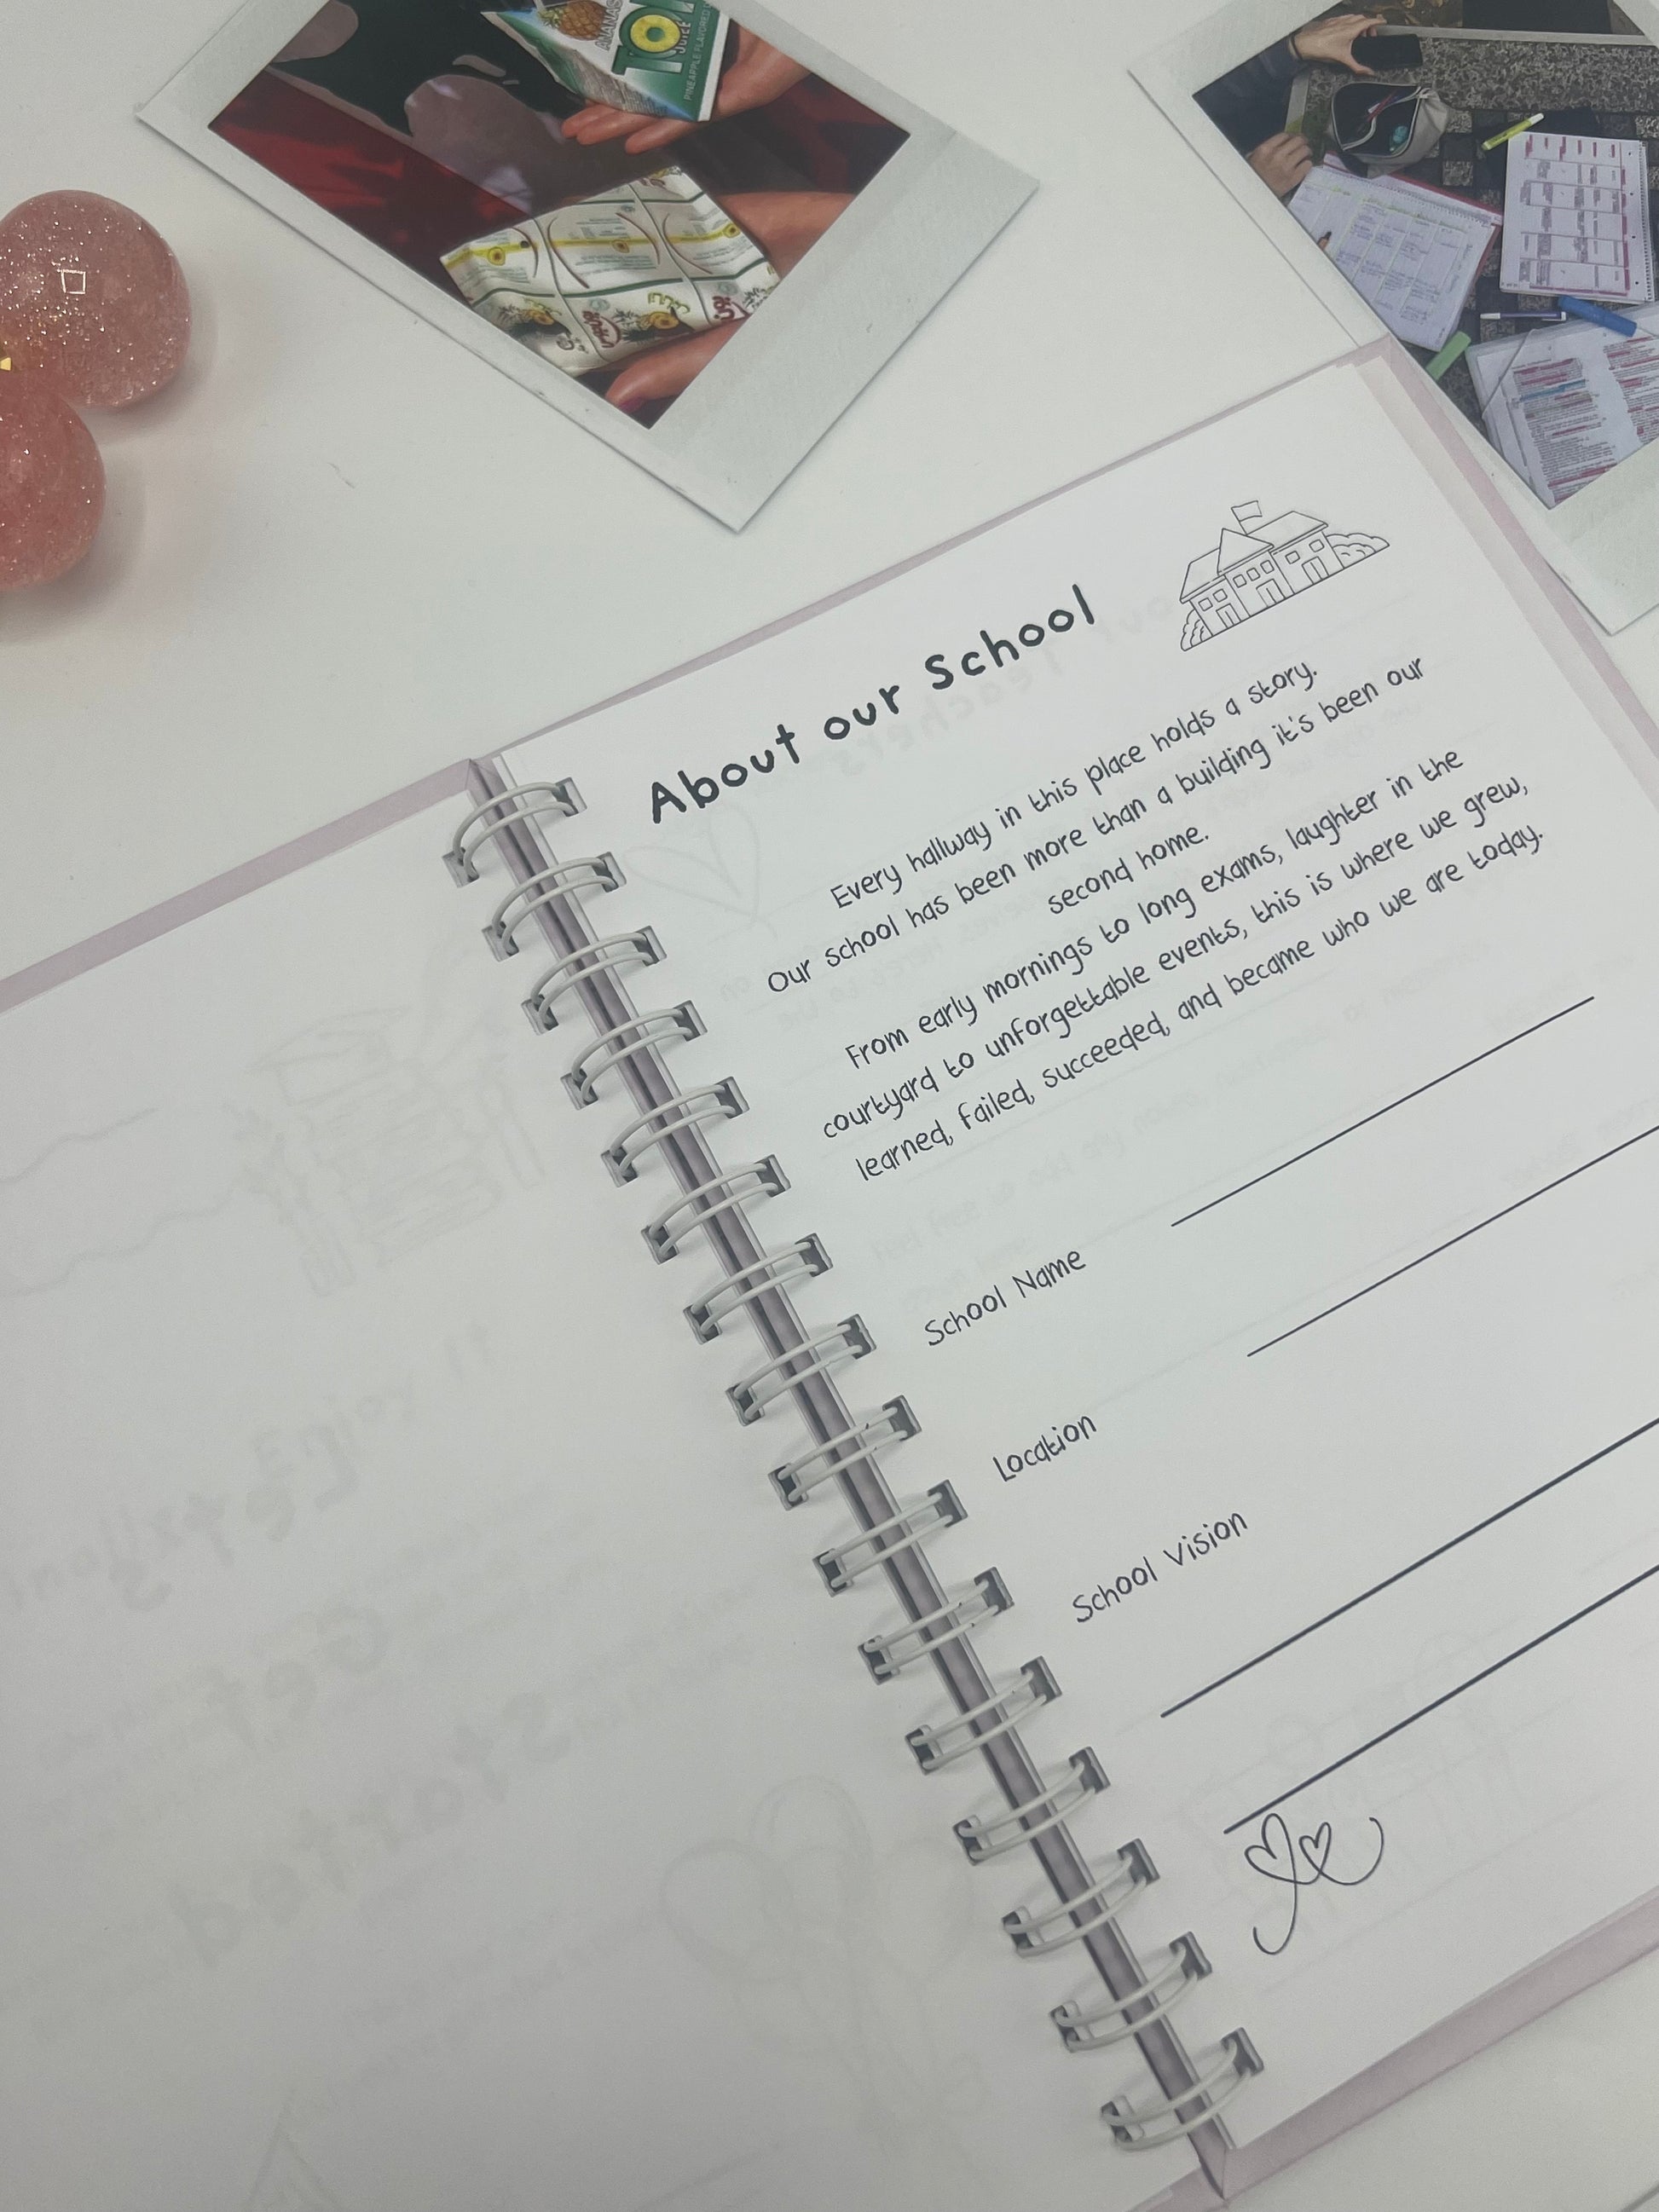 ANANAS
JUICE
PINEAPPLE FLAVORED
About our School
Every hallway in this place holds a story.
Our school has been more than a building it's been our
second home.
From early mornings to long exams, laughter in the
courtyard to unforgettable events, this is where we grew,
learned, failed, succeeded, and became who we are today.
School Name
Location
School Vision